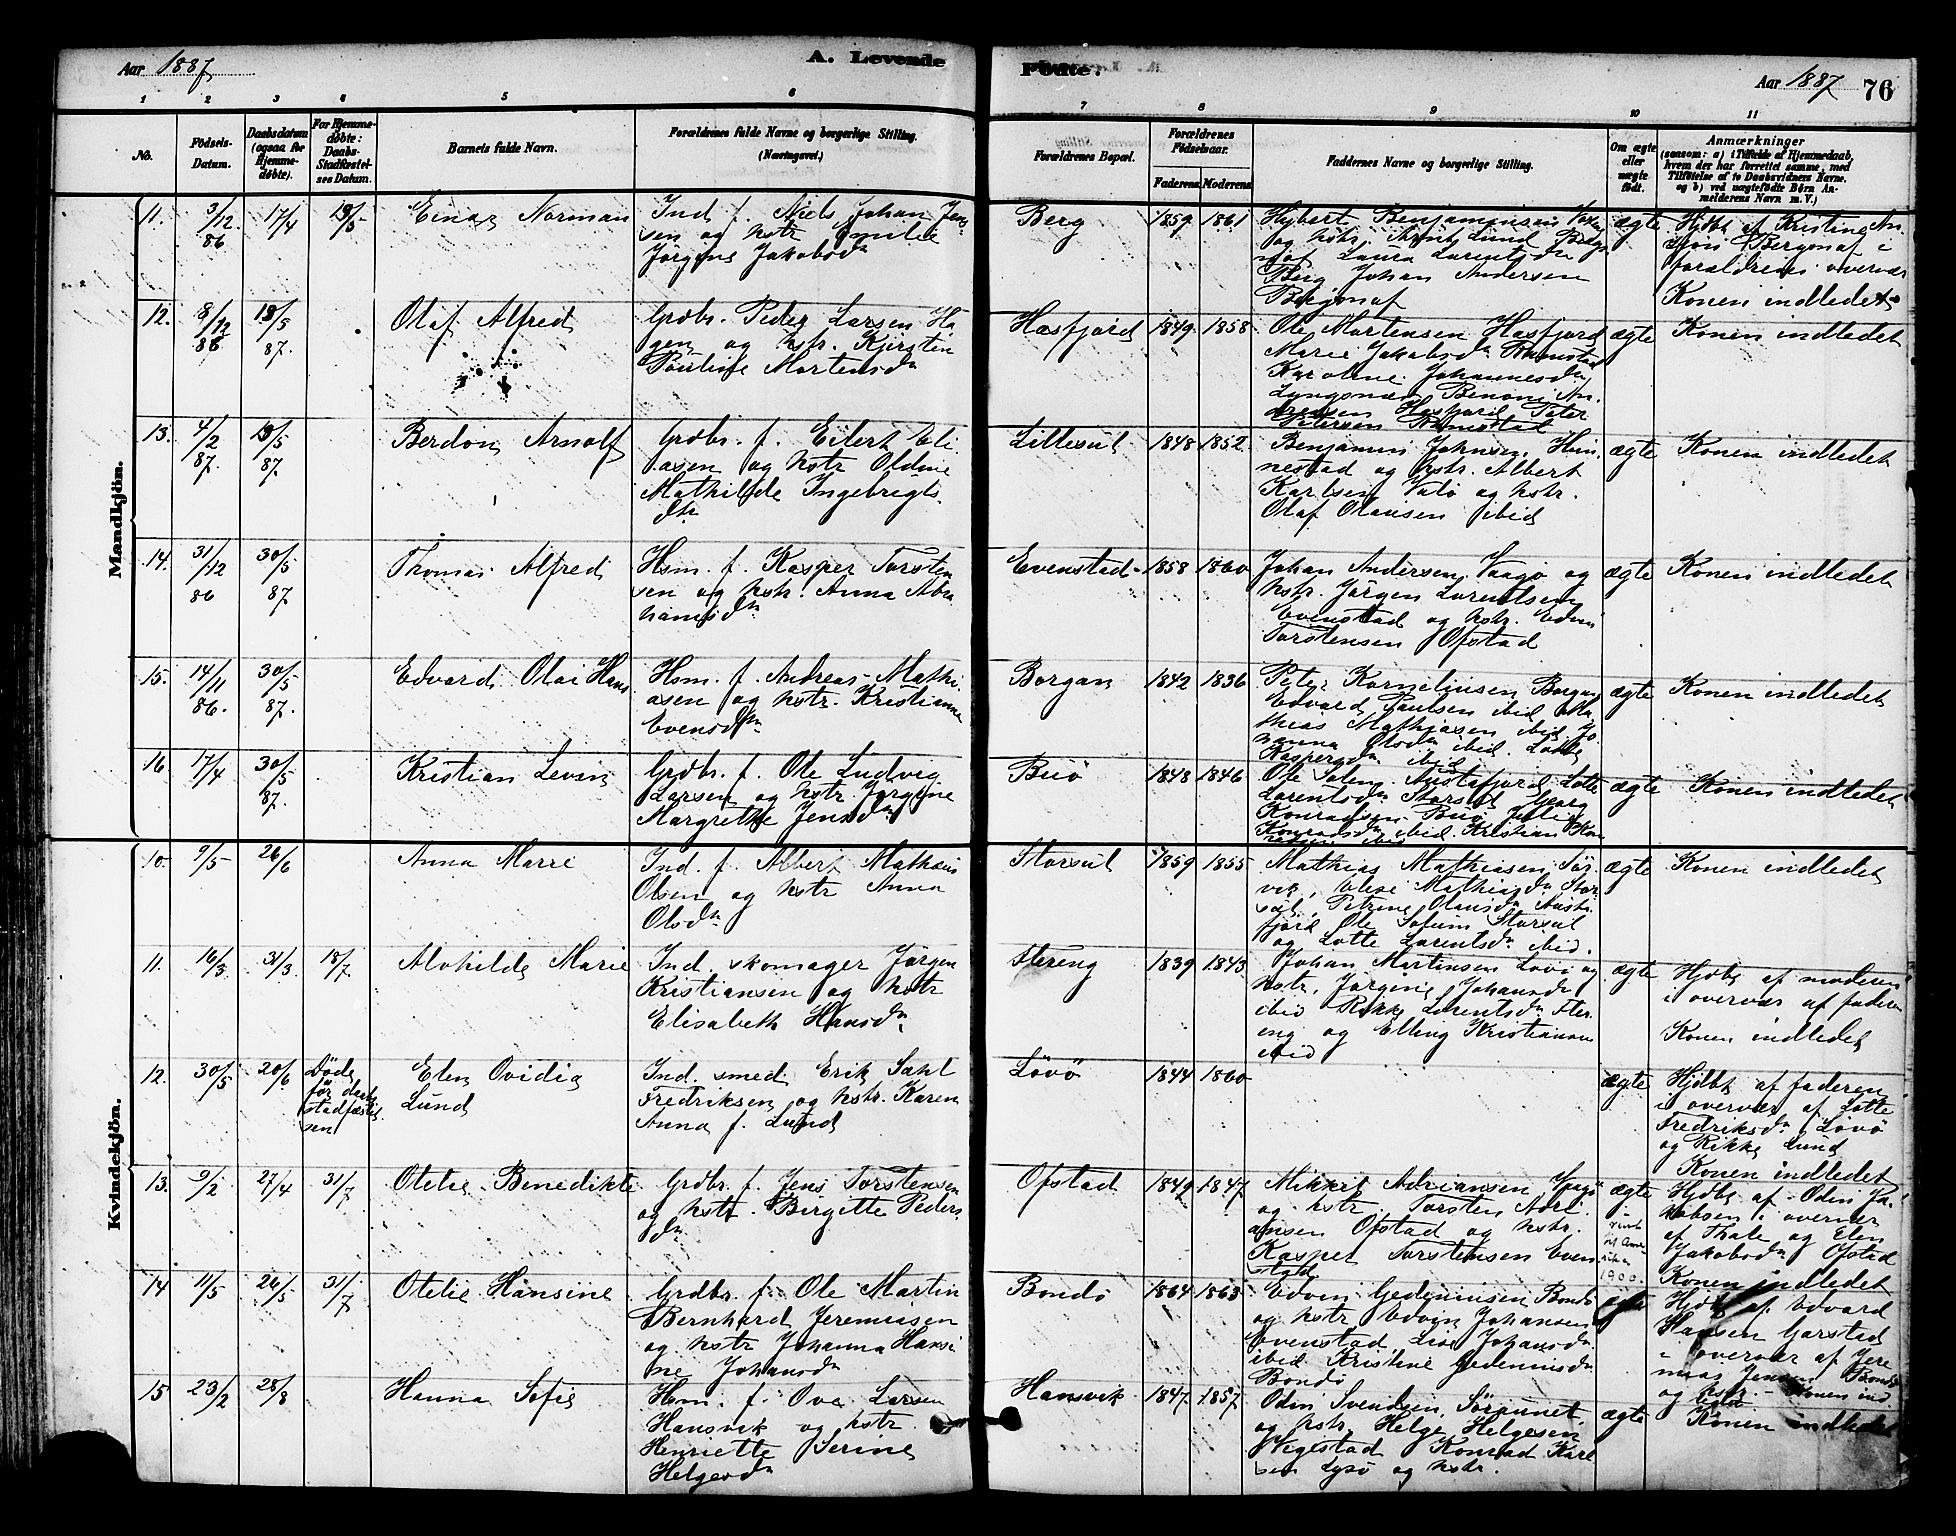 Aar 1887
A. Levende
Fødte.
Aar 1887 76
1 2 3 4 5 6 7 8 9 10 11
No.
Fødsels-
Datum.
Daabsdatum
(ogsaa for
Hjemme-
døbte).
For Hjemme-
døbte:
Daabs-
Stadfæstel-
ses Datum.
Barnets fulde Navn.
Forældrenes fulde Navne og borgerlige Stilling.
(Næringsvei.)
Forældrenes Bopæl.
Forældrenes
Fødselsaar.
Faderens Moderens
Faddernes Navne og borgerlige Stilling.
Om ægte
eller
uægte
født.
Anmærkninger
(saasom: a) i Tilfælde af Hjemmedaab,
hvem der har forrettet samme, med
Tilføielse af to Daabsvidners Navne.
og b) ved uægtefødte Børn An-
melderens Navn m. V.)
Mandkjön.
11. 3/12 86 17/4 19/5 Einar Norman
Ind. f. Niels Johan Jen-
sen og hstr Emilie
Jørgine Jakobsdn
Berg 1859 1861
Hybert Benjaminsen
og hstr. Lund
Laura Larentsdn
Berg Johan Andersen
Bergsnaf
ægte
Hjdbt af Kristine An-
Bergsnaf i
forældrenes overvær
Konen indledet
12. 8/12 86 19/5 87. Olaf Alfred
Grdbr. Peder Larsen Ha
gen og hstr. Kjersten
Pauline Martensdn
Hasfjord 1849 1858
Ole Martensen Hasfjord
Marie Jakobsdn Ramstad
Karoline Johannesdn
Lyngsnes Benoni An-
dreasen Hasfjord Peter
Petersen Ramstad
ægte Konen indledet
13. 4/2 87. 19/5 87. Berdon Arnolf
Grdbr. f. Eilert Eli
asen og hstr Oldine
Mathilde Ingebrigts
dtr.
Lillesul 1848 1852
Benjamin Johnsen, Hun-
nestad og hstr. Albert
Karlsen Valø og hstr.
Olaf Olausen ibid
ægte Konen indledet
14. 31/12 86 30/5 87 Thomas Alfred
Hsm. f. Kasper Torsten
sen og hstr. Anna Abra
hamsdn
Evenstad 1858 1860
Johan Andersen Vaagø og
hstr. Jørgen Larentsen
Evenstad og hstr. Edvin
Torstensen Ofstad
ægte Konen indledet
15. 14/11 86. 30/5 87. Edvard Olai Hans
Hsm. f. Andreas Mathi
asen og hstr. Kristianna
Evensdn
Borgan 1842 1836
Peter Korneliusen Borgan
Edvard Paulsen ibid Ma
thias Mathiasen ibid Jo
hanna Olsdn ibid Lotte
Kaspersdn ibid
ægte Konen indledet
16 17/4 30/5 87. Kristian Levin
Grdbr. f. Ole Ludvig
Larsen og hstr Jørgine
Margrethe Jensdn
Buø 1848 1846
Ole Salen Austafjord Lotte
Larentsdn Storsul Georg
Konradsen Buø Julie
Konradsdn ibid Kristian Kon
radsen ibid
ægte Konen indledet
Kvindekjön.
10. 9/5 26/6 Anna Marie
Ind. f. Albert Mathæus
Olsen og hstr Anna
Olsdn
Storsul 1859 1855
Mathias Mathiasen Sør-
vik, Elise Mathiasdn Stor
sul, Petrine Olausdn Aust-
fjord Ole Storsul
og Lotte Larentsdn ibid.
ægte Konen indledet
11. 16/3 31/3 18/7 Alvhilde Marie
Ind. skomager Jørgen
Kristiansen og hstr
Elisabeth Hansdn
Flereng 1839 1843
Johan Martinsen Lovø og
hstr, Jørgine Johansdn
ibid Rikke Larentsdn Fler-
eng og Elling Kristiansen
ibid
ægte
Hjdbt af moderen
i overvær af faderen
Konen indledet
12. 30/5 20/6
Døde
før daabs
stadfæstel
sen
Elen Ovidia
Lund
Ind. smed Erik Sahl
Fredriksen og hstr. Karen
Anna f. Lund
Lövö 1844 1860 ægte
Hjdbt af faderen
i overvær af Lotte
Fredriksdn Lövö
og Rikke Lund
Konen indledet
13. 9/2 27/4 31/7 Otelie Benedikte
Grdbr. f. Jens Torstensen
og hstr. Birgitte Peders
dn
Ofstad 1849 1847
Mikkel Adriansen Vaagø
og hstr Torsten Adri
ansen Ofstad og hstr.
Kasper Torstensen Even
stad
ægte
1900.
Hjdbt af Odin Ja-
kobsen i overvær
af Thale og Elen
Jakobsdn Ofstad
Konen indledet
14 11/5 26/5 31/7 Otelie Hansine
Grdbr. f. Ole Martin
Bernhard Jeremiasen
og hstr Johanna Hansi
ne Johansdn
Bondø 1864 1863
Edvin Gedeminsen Bondø
og hstr Edvin Johansen
Evenstad Lise Johansdn
ibid Kristine Gedeminsdn
Bondø
ægte
Hjdbt af Edvard
Hansen Garstad
i overvær af Jere
mias Jensen Bondø
og hstr. - Konen ind
ledet
15 23/2 28/8 Hanna Sofie
Hsm. f. Ove Larsen
Hansvik og hstr
Henriette Serine
Helgesdn
Hansvik 1847. 1857.
Odin Svendsen, Søraunet,
og hstr, Helge Helgesen
Vigestad Konrad Karl
sen Lysø og hstr.
ægte Konen indledet